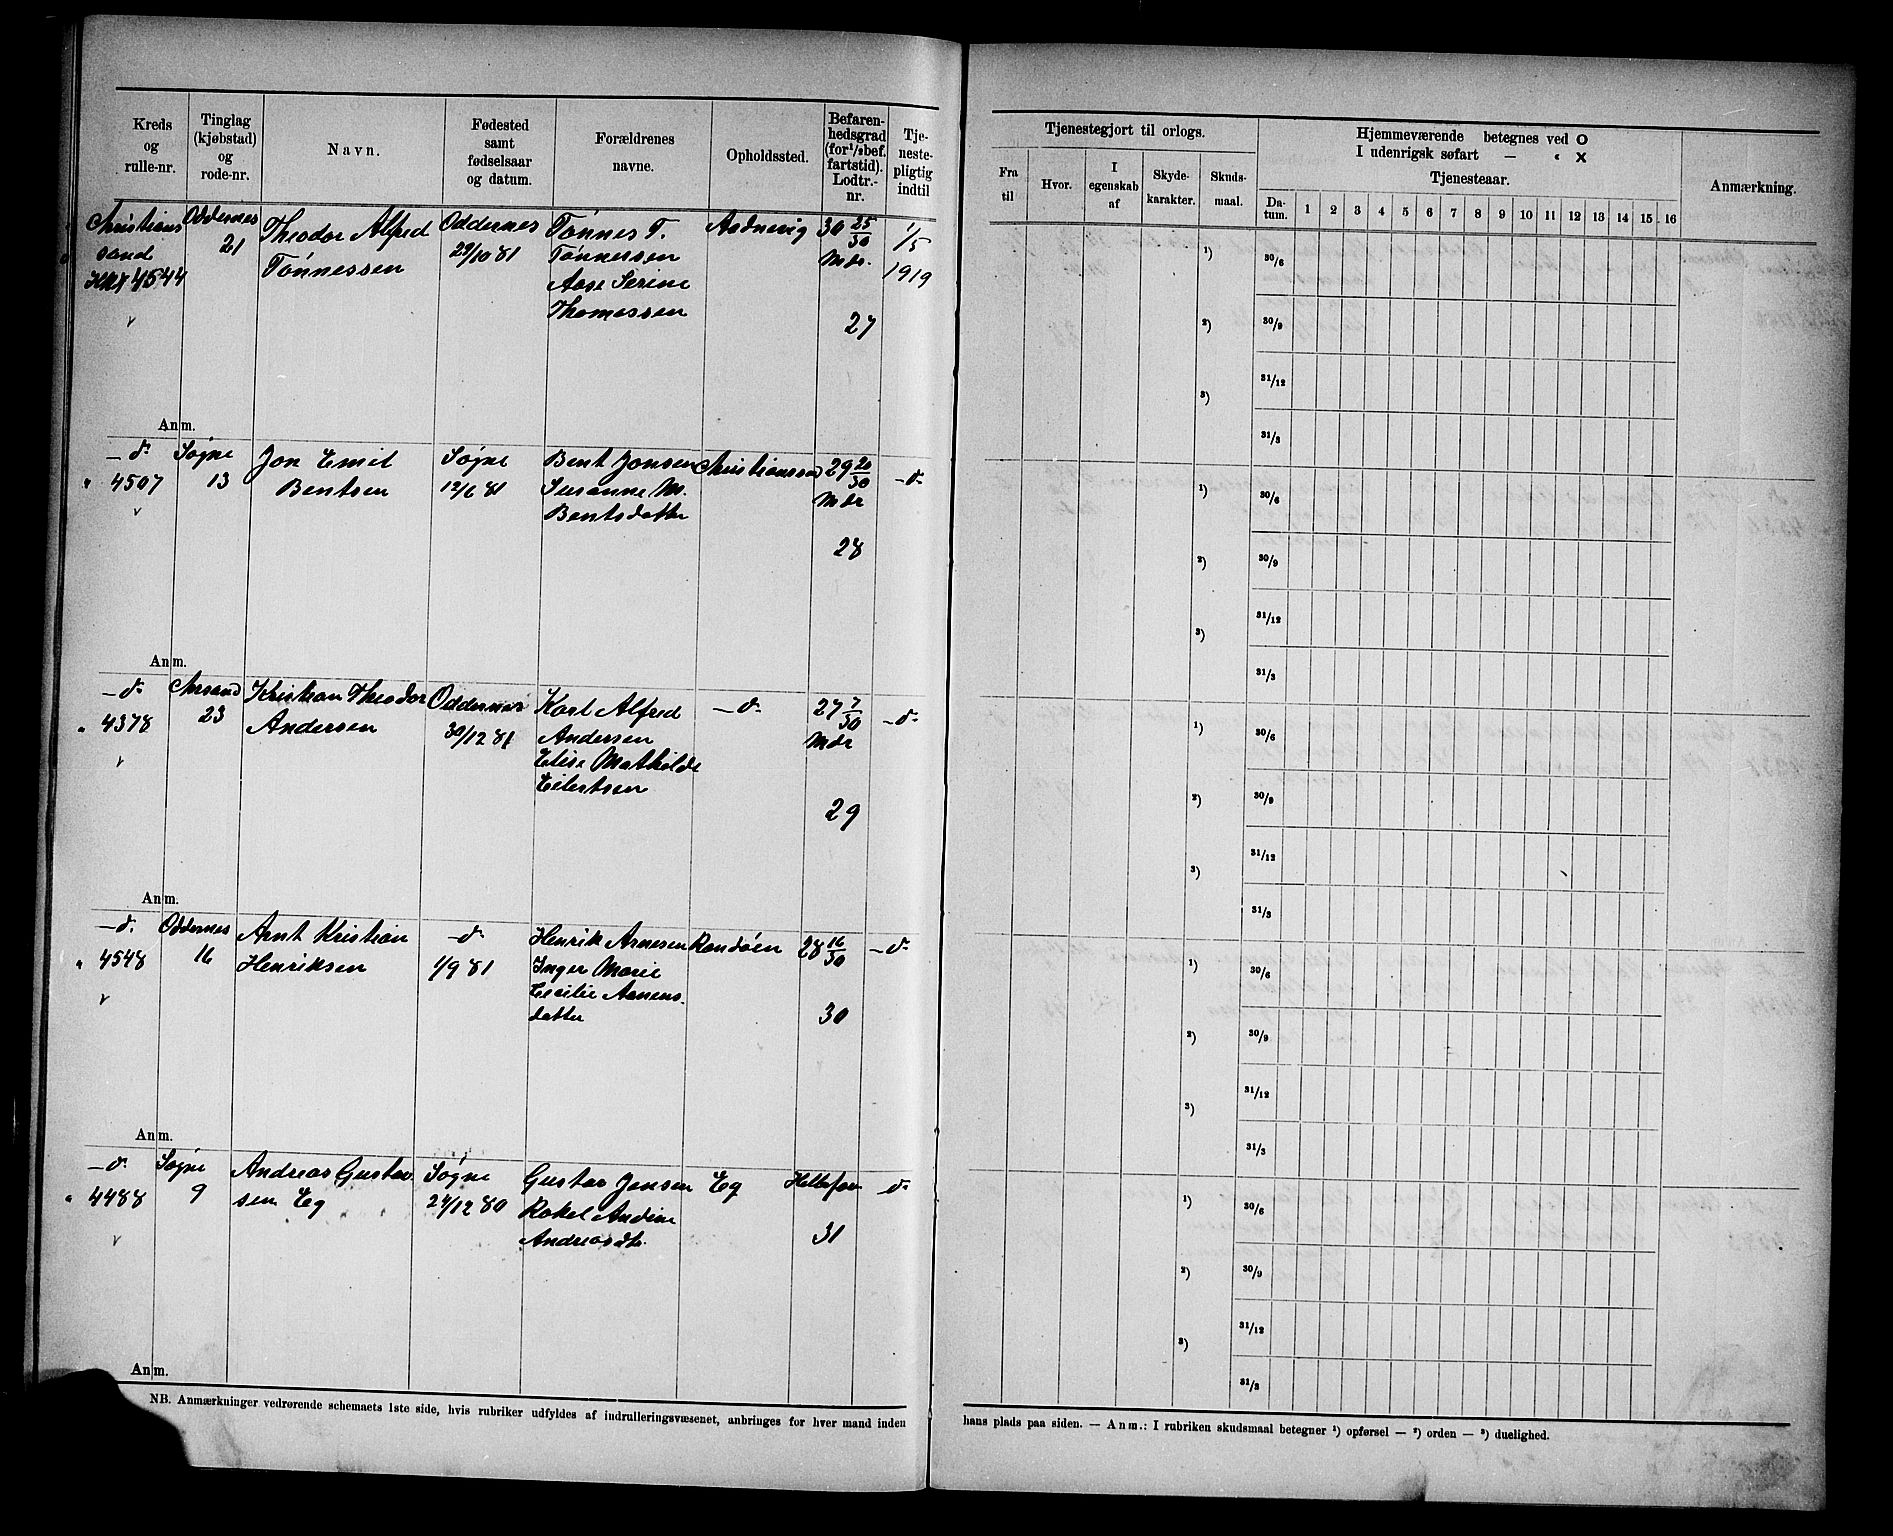 Kreds og rulle-nr.
Tinglag (kjøbstad) og rode-nr.
Navn.
Fødested samt fødselsaar og datum.
Forældrenes navne.
Opholdssted.
Befaren-hedsgrad (for ½ bef. fartstid). Lodtr.-nr.
Tje-neste-pligtig indtil
Christians
sand
4544
Oddernes
21
Theodor Alfred
Tønnessen
Oddernes
29/10 81
Tønnes T.
Tønnessen
Aase Serine
Thomassen
30 25/30
Mdr.
27
1/5
1919
Anm.
— d-
4507
Søgne
13
Jon Emil
Bentsen
Søgne
12/6 81
Bent Jonsen
Susanne M.
Bentsdatter
Christianssand
29 20/30
Mdr
28
— d-
Anm.
— d-
4378
23
Kristian Theodor
Andersen
Oddernes
30/12 81
Karl Alfred
Andersen
Elise Mathilde
Eilertsen
— d-
27 7/30
Mdr
29
— d-
Anm.
— d-
4548
Oddernes
16
Arnt Kristian
Henriksen
— d-
1/9 81
Henrik Arnesen
Inger Marie
Cecilie
datter
Randøen
28 16/30
30
— d-
Anm.
— d-
4488
Søgne
9
Andreas Gustav
sen Eg
Søgne
24/12 80
Gustav Jensen
Rakel Andine
Andreasdtr.
Eg
31
— d-
Anm.
NB. Anmærkninger vedrørende schemaets 1ste side, hvis rubriker udfyldes af indrulleringsvæsenet, anbringes for hver mand inden
Tjenestegjort til orlogs.
Fra til
Hvor.
I egenskab af
Skyde-karakter.
Skuds-maal.
Hjemmeværende betegnes ved O
I udenrigsk søfart — " X
Tjenesteaar.
Da-tum. 1 2 3 4 5 6 7 8 9 10 11 12 13 14 15 16
Anmærkning.
¹) 30/6
²) 30/9
31/12
³)
31/3
¹) 30/6
²) 30/9
31/12
³)
31/3
¹) 30/6
²) 30/9
31/12
³)
31/3
¹) 30/6
²) 30/9
31/12
³)
31/3
¹) 30/6
²) 30/9
31/12
³)
31/3
hans plads paa siden. — Anm.: I rubriken skudsmaal betegner ¹) opførsel — ²) orden — ³) duelighed.